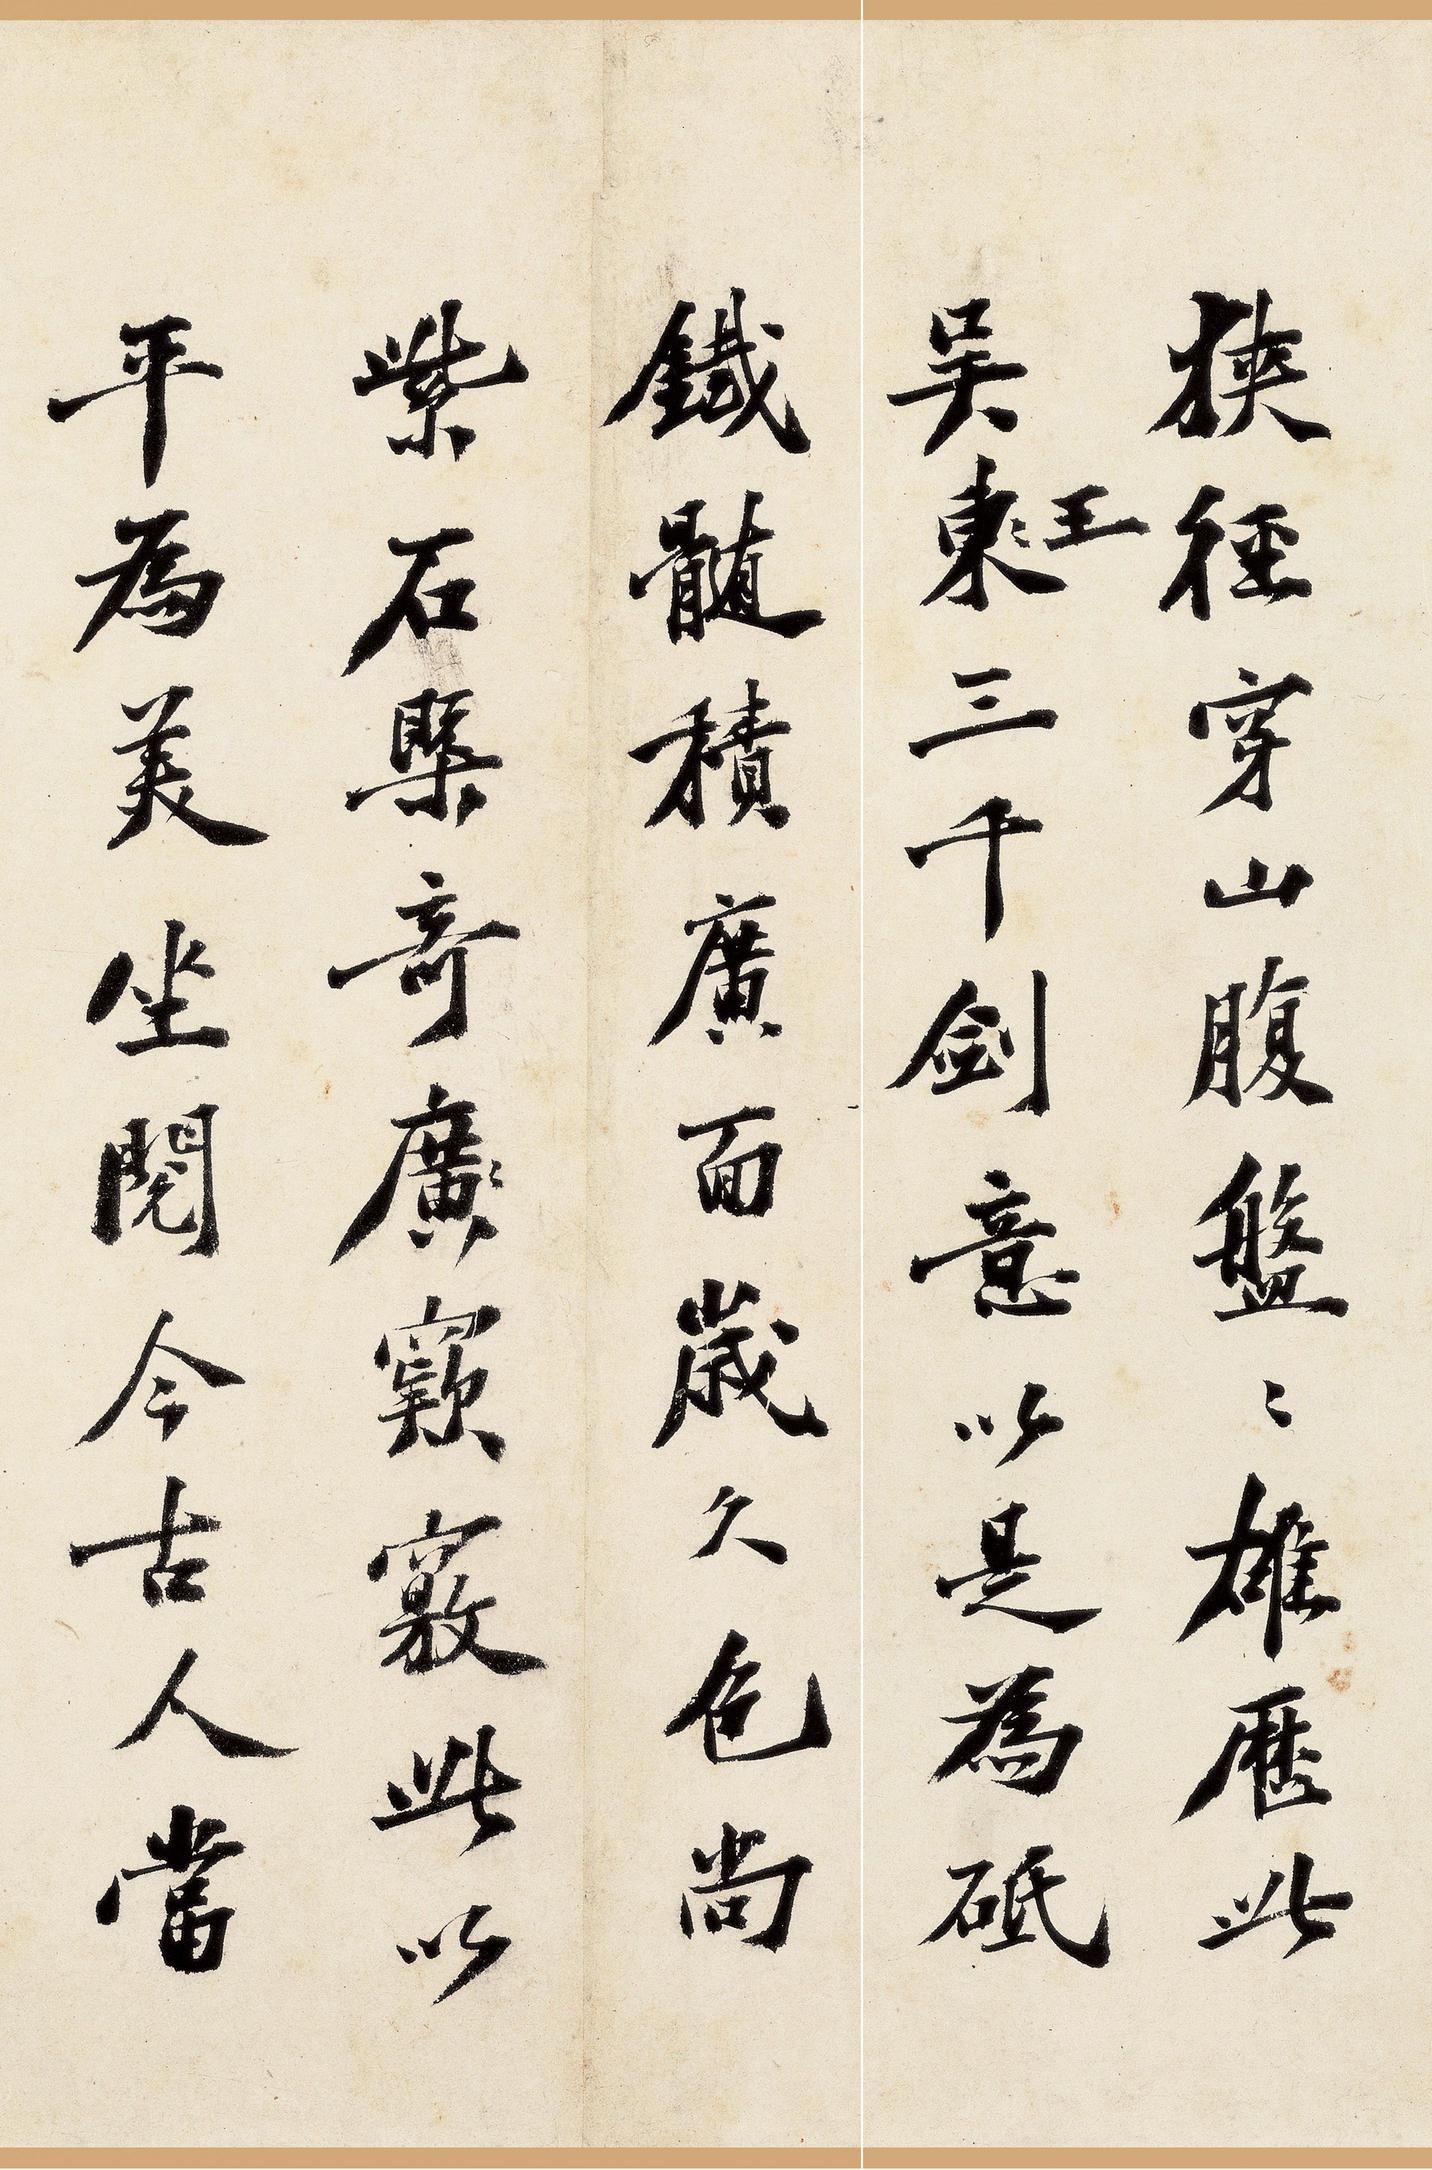 狹徑穿山腹盤〻雄歷此
吴東王三千劍意以是為砥
鐵髓積廣面歲久色尚
紫石槩奇廣窾竅此以
平為美坐閱今古人當